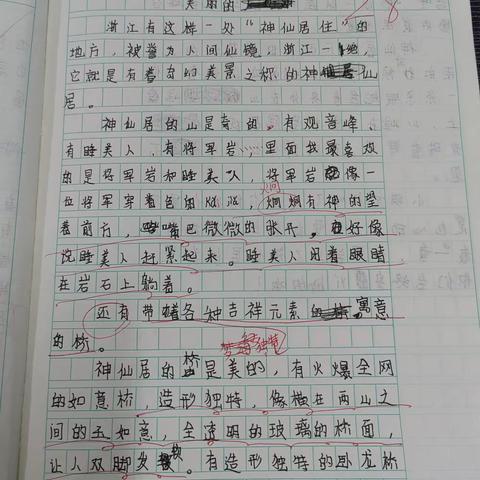 美丽的
浙江有这样一处“神仙居住”的
地方，被誉为人间仙镜，浙江一绝，
它就是有着奇幻美景之称的神仙
居。
神仙居的山是奇的。有观音峰、
有睡美人、有将军岩……里面我最喜欢
的是将军岩和睡美人，将军岩像一
位将军穿着色的，炯炯有神的望
炯
着前方，嘴巴微微的张开，好像
说睡美人赶紧起来。睡美人闭着眼睛
在岩石上躺着。
还有带着各种吉祥元素的寓意
的桥。
独特
神仙居的桥是美的，有火爆全网
的如意桥，造形独特，像横在两山之
间的玉如意，全透明的玻璃的桥面，
让人双脚发软。有造形独特的卧龙桥